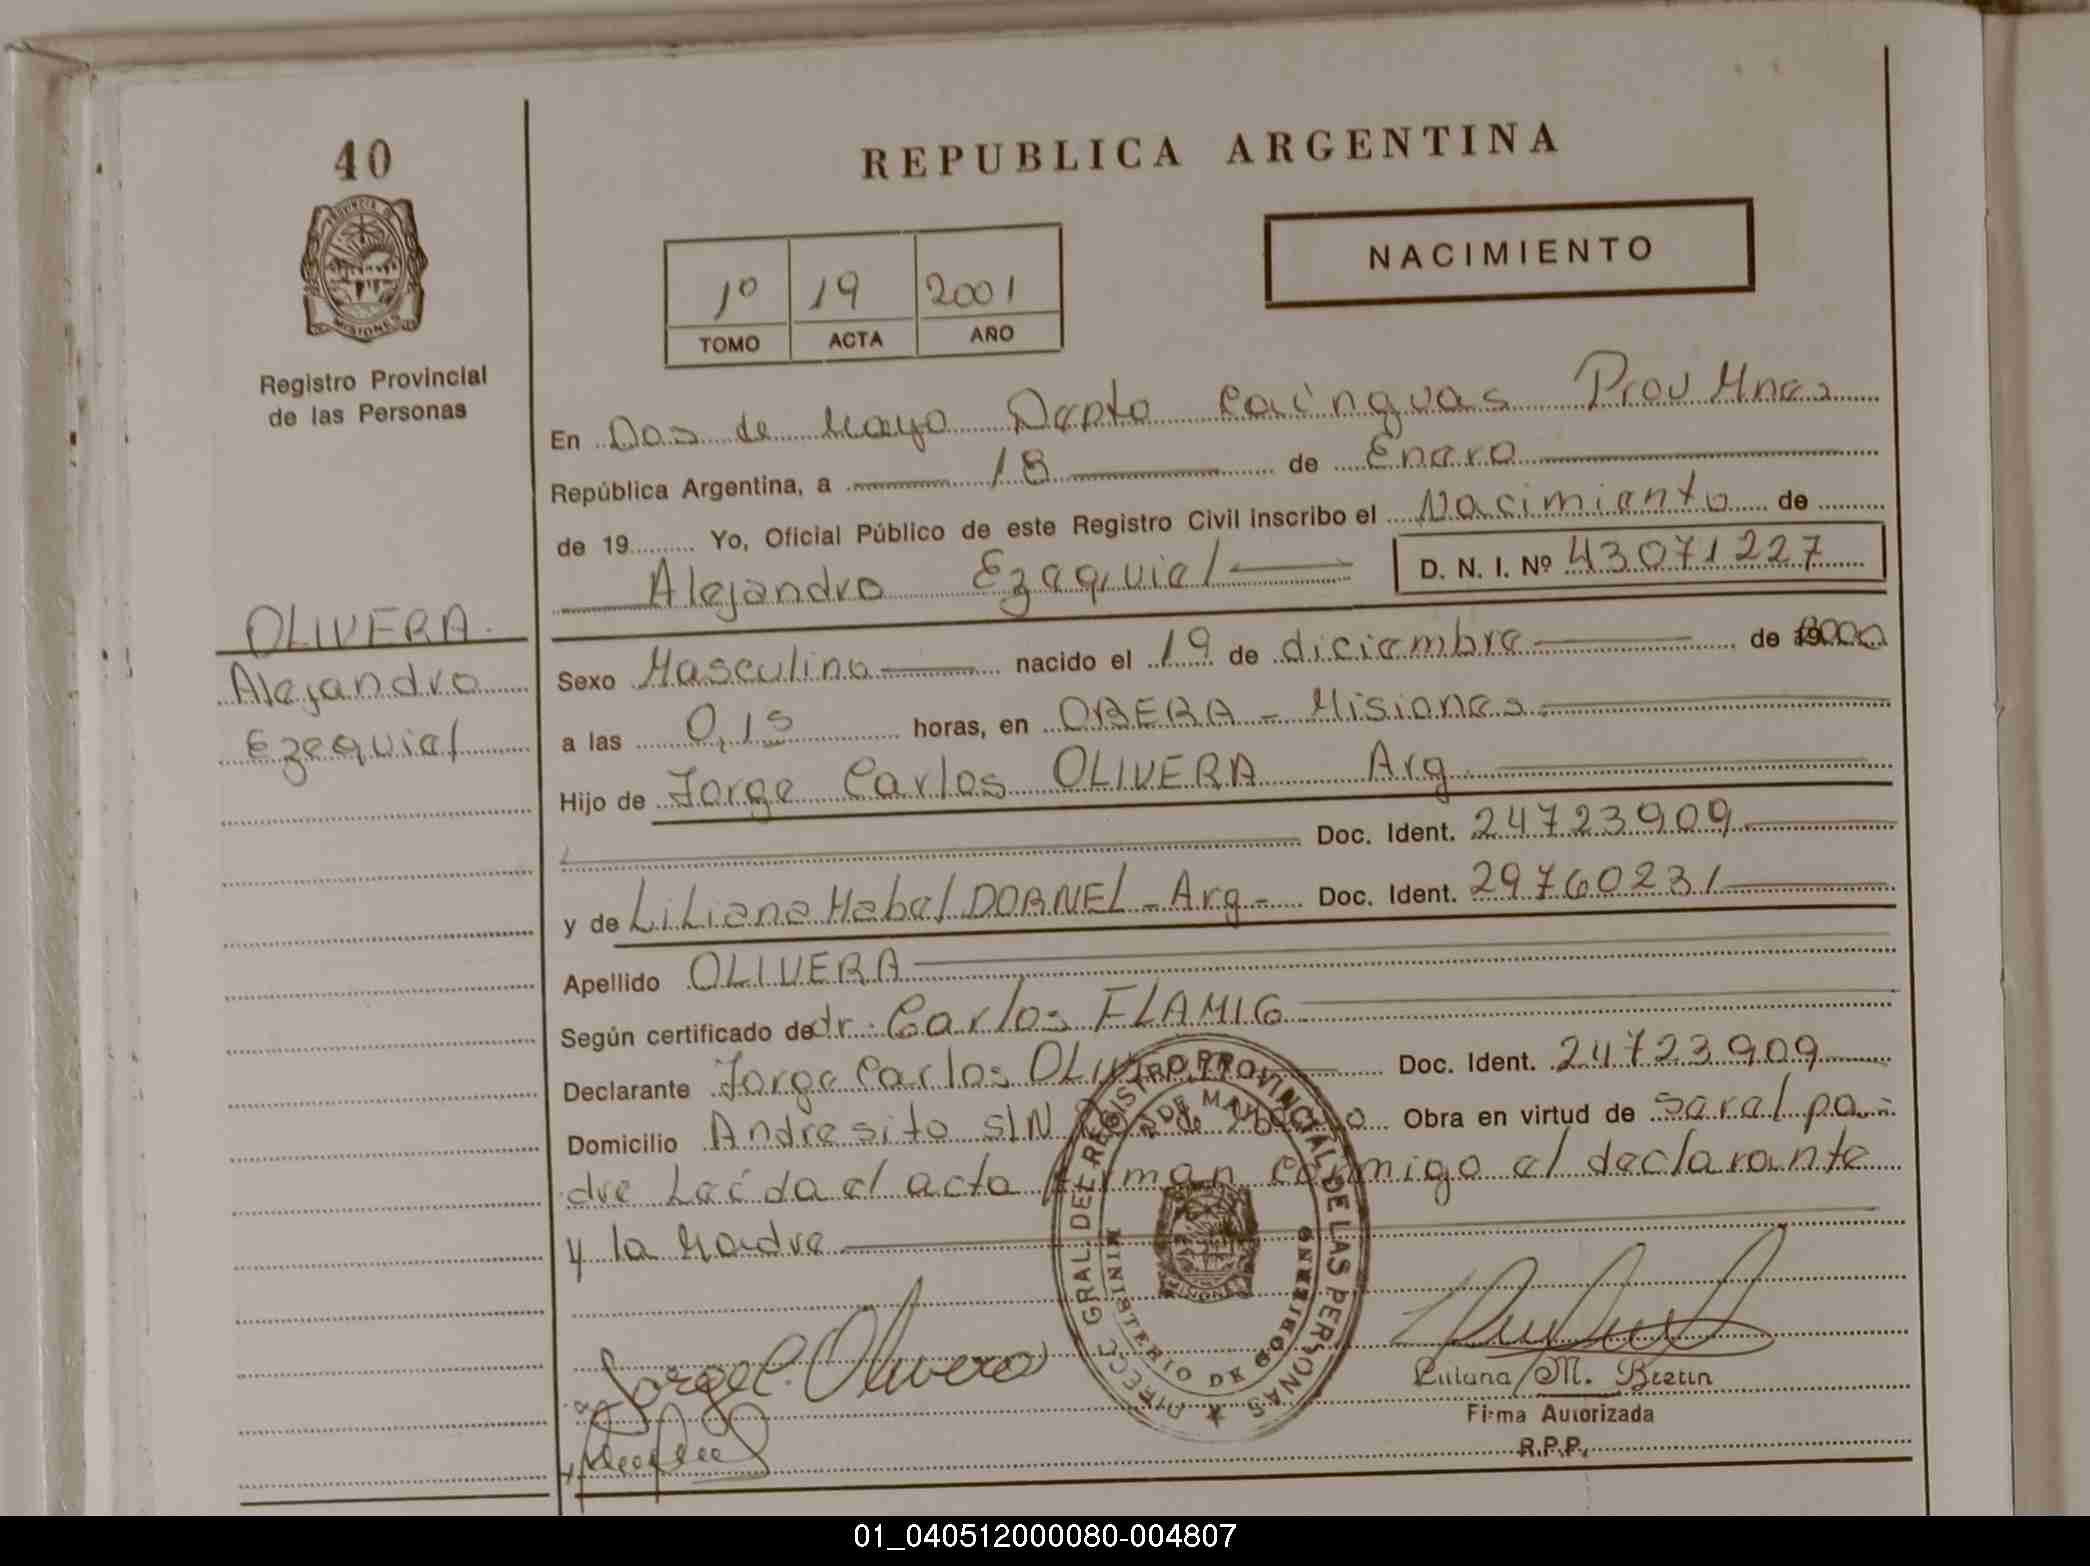 40
REPUBLICA ARGENTINA
NACIMIENTO
1º 19 2001
TOMO ACTA AÑO
PROVINCIA DE
MISIONES
Registro Provincial
de las Personas
OLIVERA
Alejandro
Ezequiel
En Dos de Mayo Depto Cainguas Prov Mnes
República Argentina, a 18 de Enero
de 19 Yo, Oficial Público de este Registro Civil inscribo el Nacimiento de
Alejandro Ezequiel D. N. I. Nº 43071227
Sexo Masculino nacido el 19 de diciembre de 2000
a las 0,15 horas, en OBERA - Misiones
Hijo de Jorge Carlos OLIVERA Arg
Doc. Ident. 24723909
y de Liliana Mabel DORNEL - Arg - Doc. Ident. 29760231
Apellido OLIVERA
Según certificado de dr. Carlos FLAMIG
Declarante Jorge Carlos Doc. Ident. 24723909
Domicilio Andresito S/N 2 de Mayo Obra en virtud de ser el pa-
dre Leída el acta firman conmigo el declarante
y la Madre
DIRECC GRAL DEL REGISTRO PROVINCIAL DE LAS PERSONAS
MINISTERIO DE GOBIERNO
Jorge C. Olivera
M. Bretin
Firma Autorizada
R.P.P.
01_040512000080-004807